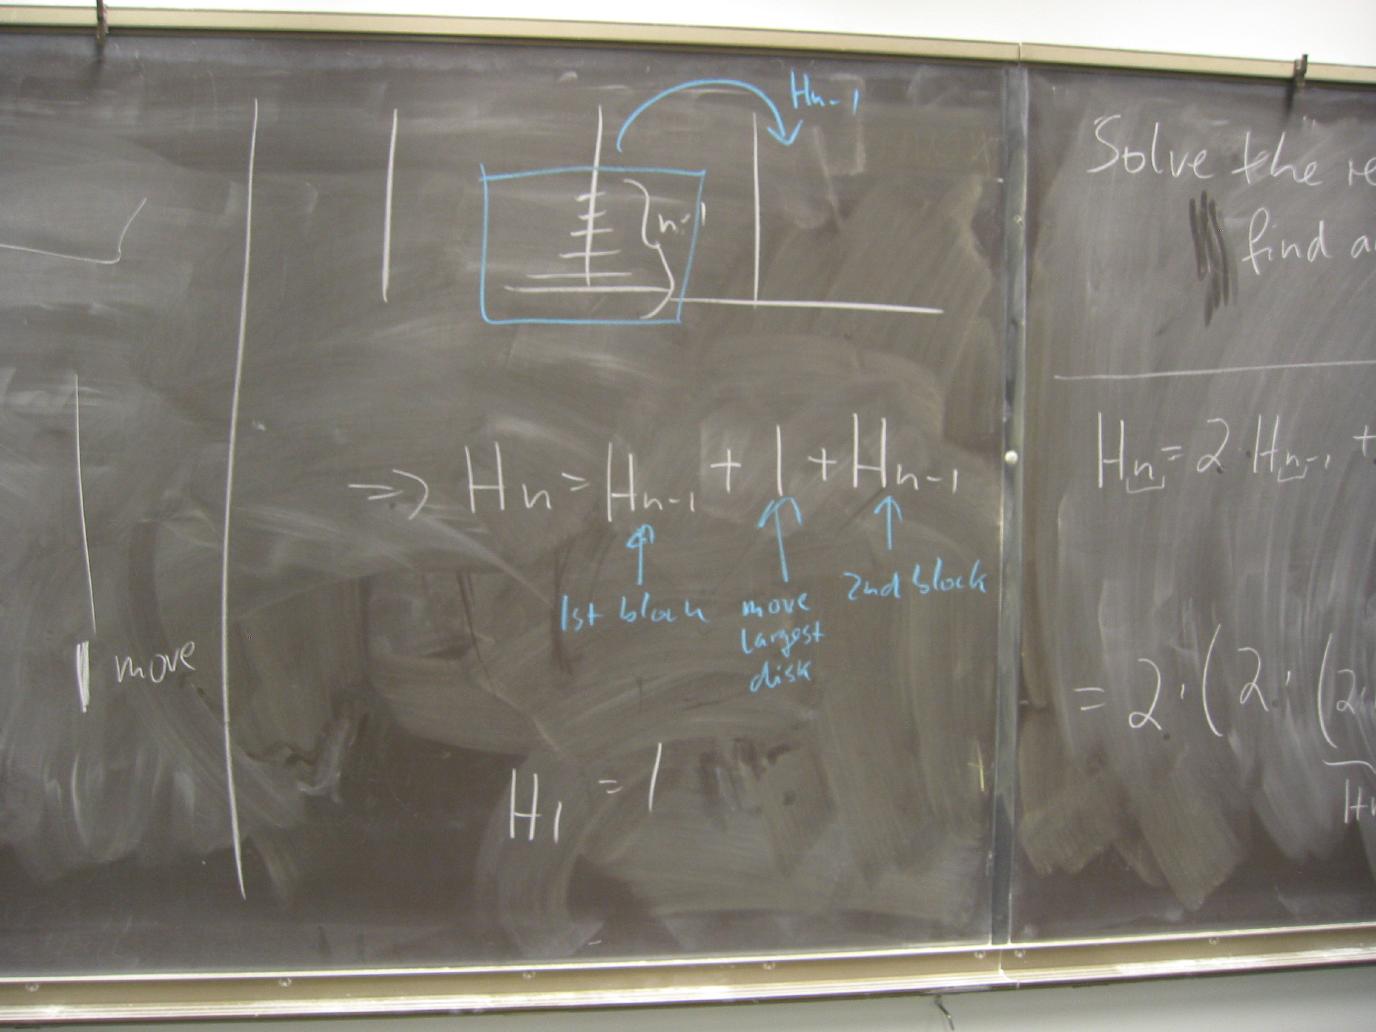 H_{n-1}
n-1
=> H_n = H_{n-1} + 1 + H_{n-1}
1st block
move
largest
disk
2nd block
H_1 = 1
move
Solve the re
find a
H_n = 2 H_{n-1} +
= 2 · ( 2 · ( 2 ·
H